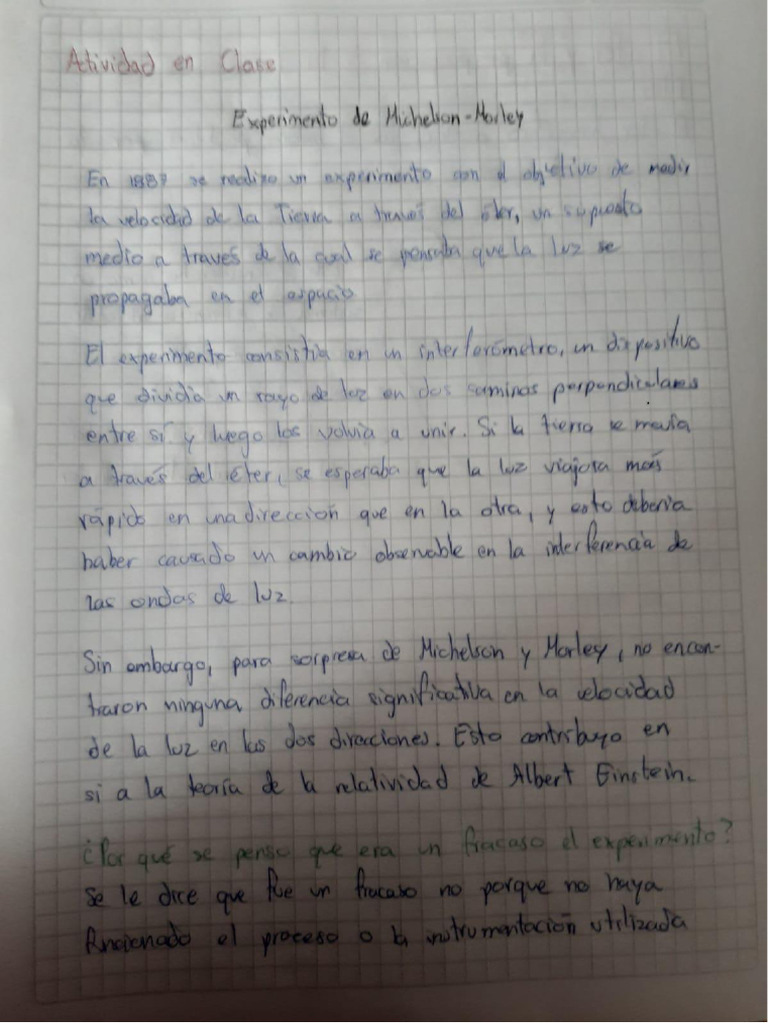 Actividad en Clase
Experimento de Michelson-Morley
En 1887 se realizo un experimento con el objetivo de medir
la velocidad de la Tierra a través del éter, un supuesto
medio a través de la cual se pensaba que la luz se
propagaba en el espacio
El experimento consistia en un interferómetro, un dispositivo
que dividia un rayo de luz en dos caminos perpendiculares
entre sí y luego los volvia a unir. Si la tierra se movia
a través del éter, se esperaba que la luz viajara más
rápido en una dirección que en la otra, y esto deberia
haber causado un cambio observable en la interferencia de
las ondas de luz.
Sin embargo, para sorpresa de Michelson y Morley, no encon-
traron ninguna diferencia significativa en la velocidad
de la luz en las dos direcciones. Esto contribuyo en
si a la teoría de la relatividad de Albert Einstein.
¿Por qué se penso que era un fracaso el experimento?
Se le dice que fue un fracaso no porque no haya
funcionado el proceso o la instrumentación utilizada